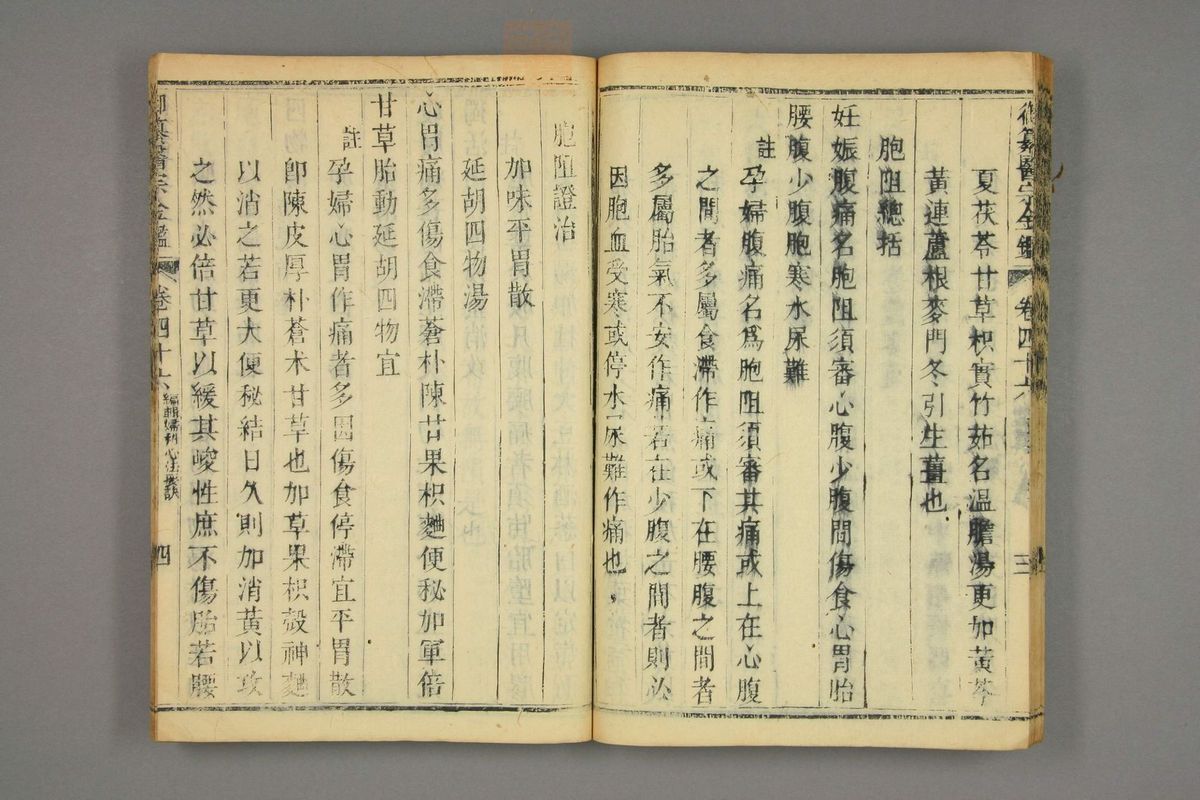 御纂醫宗金鑑 卷四十六 三
夏茯苓甘草枳實竹茹名溫膽湯更加黃芩
黃連蘆根麥門冬引生薑也
胞阻總括
妊娠腹痛名胞阻須審心腹少腹間傷食心胃胎
腰腹少腹胞寒水尿難
註孕婦腹痛名爲胞阻須審其痛或上在心腹
之間者多屬食滯作痛或下在腰腹之間者
多屬胎氣不安作痛若在少腹之間者則必
因胞血受寒或停水尿難作痛也
胞阻證治
加味平胃散
延胡四物湯
心胃痛多傷食滯蒼朴陳甘果枳麯便秘加軍倍
甘草胎動延胡四物宜
註孕婦心胃作痛者多因傷食停滯宜平胃散
卽陳皮厚朴蒼朮甘草也加草果枳殼神麯
以消之若更大便秘結日久則加消黃以攻
之然必倍甘草以緩其峻性庶不傷胎若腰
御纂醫宗金鑑 卷四十六 編輯婦科心法要訣 四